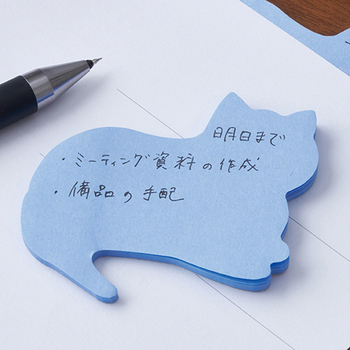 明日まで
・ミーティング資料の作成
・備品の手配